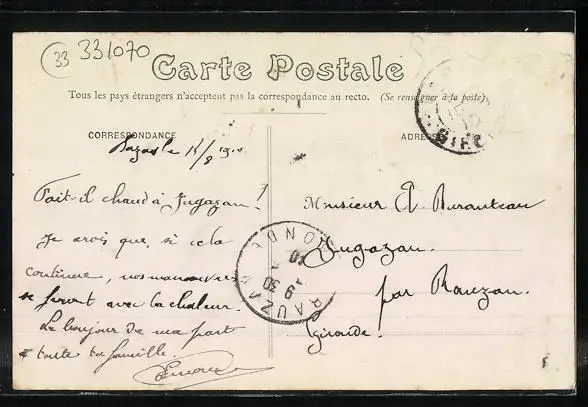 33 331070
Carte Postale
Tous les pays étrangers n'acceptent pas la correspondance au recto. (Se renseigner à la poste)
CORRESPONDANCE
ADRES
Bazas le 18/8 1910
Fait-il chaud à Jugazan!
Je crois que si cela
continue, nos manœuvres
se feront avec la chaleur.
Le bonjour de ma part
à toute ta famille.
Monsieur
Jugazan.
par Rauzan.
Gironde.
RAUZAN
GIRONDE